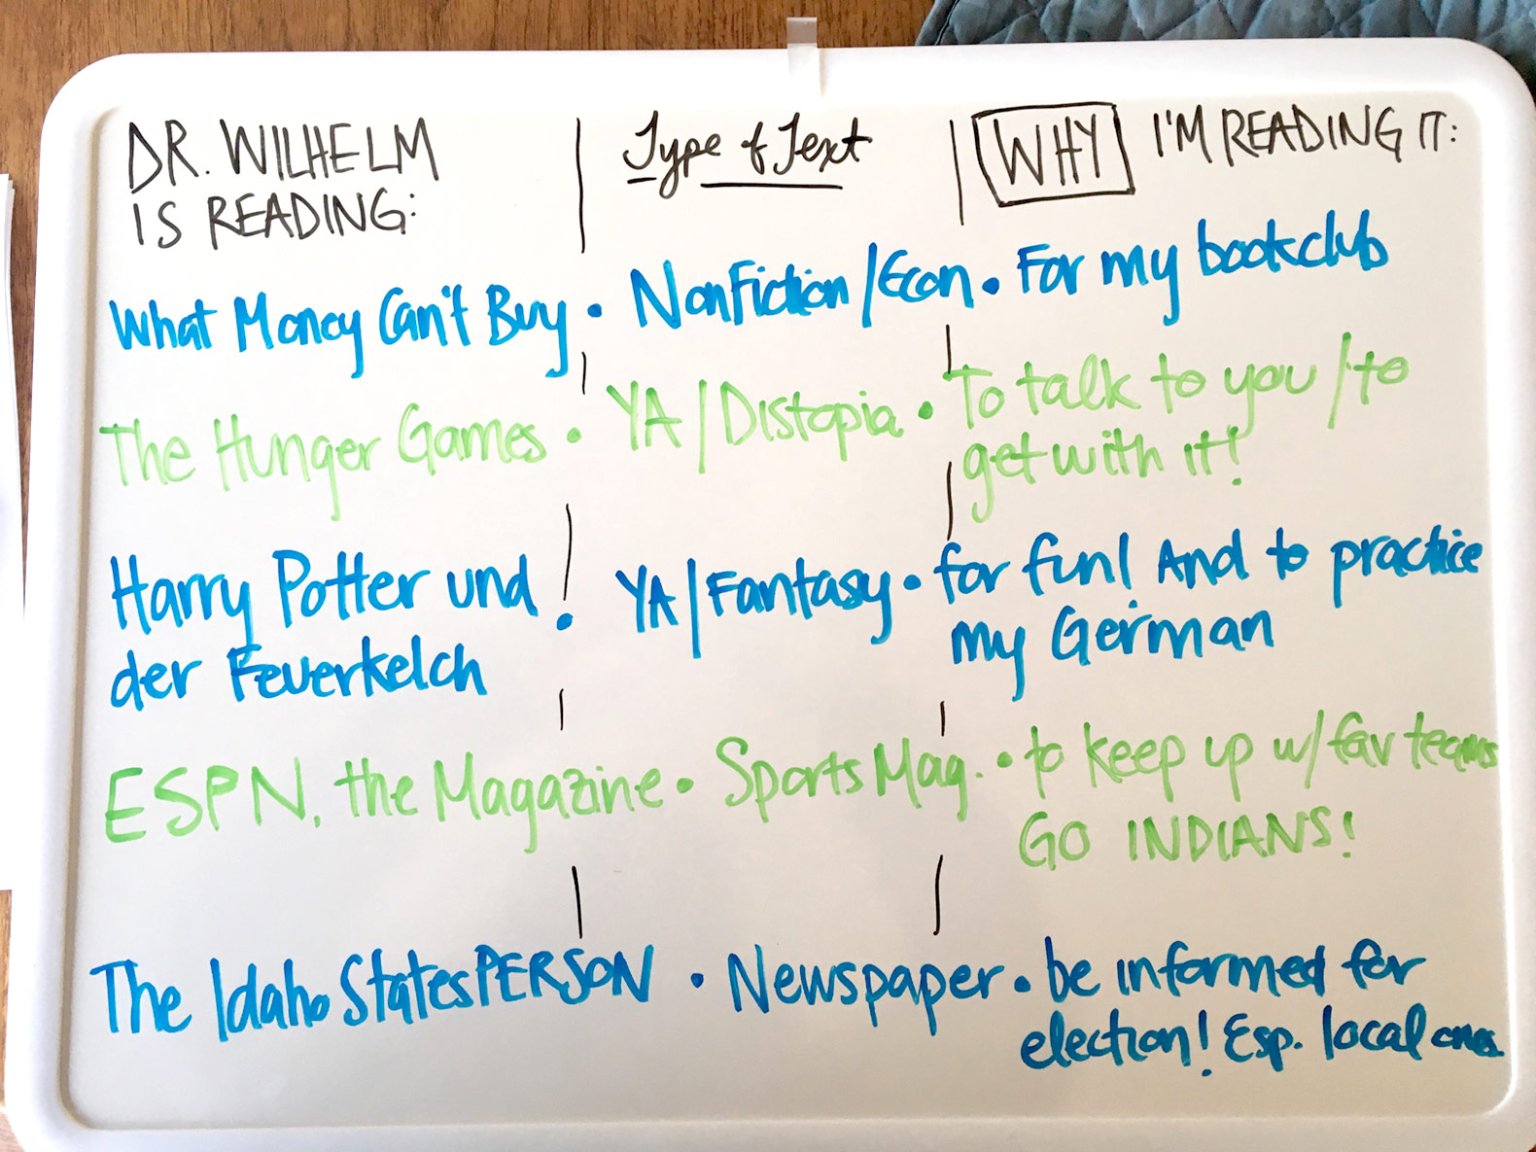 DR. WILHELM IS READING: | Type of Text | WHY I'M READING IT:
What Money Can't Buy • NonFiction/Econ • For my bookclub
The Hunger Games • YA/Distopia • To talk to you/to
get with it!
Harry Potter und • YA/Fantasy • for fun! And to practice
der Feuerkelch my German
ESPN, the Magazine • Sports Mag. • to keep up w/fav teams
GO INDIANS!
The Idaho StatesPERSON • Newspaper • be informed for
election! Esp. local ones.